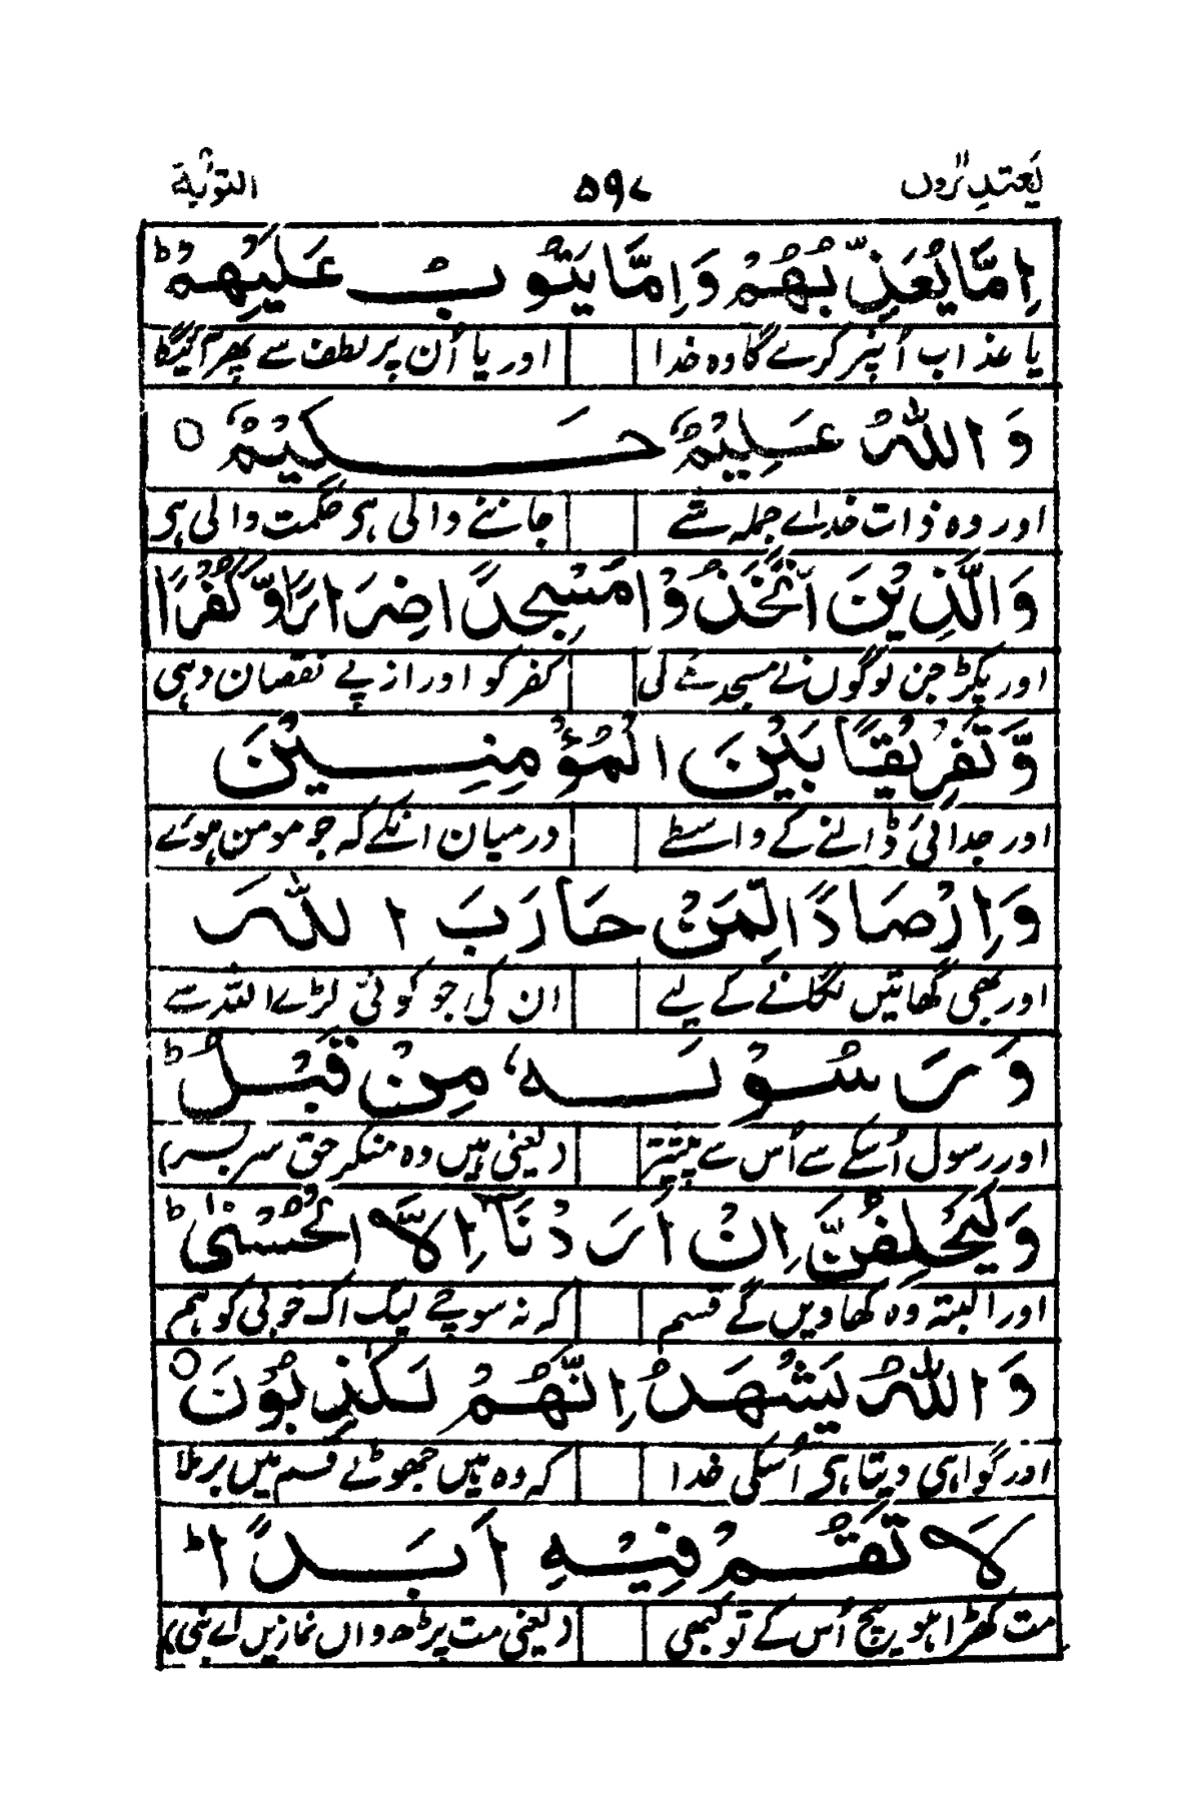 یعتذرون ۵۹۷ التوبة
اِمَّا يُعَذِّبُهُمْ وَاِمَّا يَتُوْبُ عَلَيْهِمْ ؕ
یا عذاب اُنپر کرے گا وہ خدا اور یا اُن پر لطف سے پھر آئیگا
وَاللّٰهُ عَلِيْمٌ حَكِيْمٌ ○
اور وہ ذات خدائے جملہ شئے جاننے والی ہی حکمت والی ہی
وَالَّذِيْنَ اتَّخَذُوْا مَسْجِدًا ضِرَارًا وَّكُفْرًا
اور پکڑ جن لوگوں نے مسجد شئے لی کفر کو اور از پئے نقصان دہی
وَّتَفْرِيْقًا بَيْنَ الْمُؤْمِنِيْنَ
اور جدائی ڈالنے کے واسطے درمیان انکے کہ جو مومن ہوئے
وَاِرْصَادًا لِّمَنْ حَارَبَ اللّٰهَ
اور بھی گھاتیں لگانے کے لیے ان کی جو کوئی لڑے اللہ سے
وَرَسُوْلَهٗ مِنْ قَبْلُ ؕ
اور رسول اُسکے سے اُس سے پیشتر (یعنی ہیں وہ منکر حق سر بسر)
وَلَيَحْلِفُنَّ اِنْ اَرَدْنَاۤ اِلَّا الْحُسْنٰى ؕ
اور البتہ وہ کھاویں گے قسم کہ نہ سوچے لیک اک خوبی کو ہم
وَاللّٰهُ يَشْهَدُ اِنَّهُمْ لَكٰذِبُوْنَ ○
اور گواہی دیتا ہی اُسکی خدا کہ وہ ہیں جھوٹے قسم میں برملا
لَا تَقُمْ فِيْهِ اَبَدًا ؕ
مت کھڑا ہو بیچ اُس کے تو کبھی (یعنی مت پڑھ واں نمازیں اے نبی)